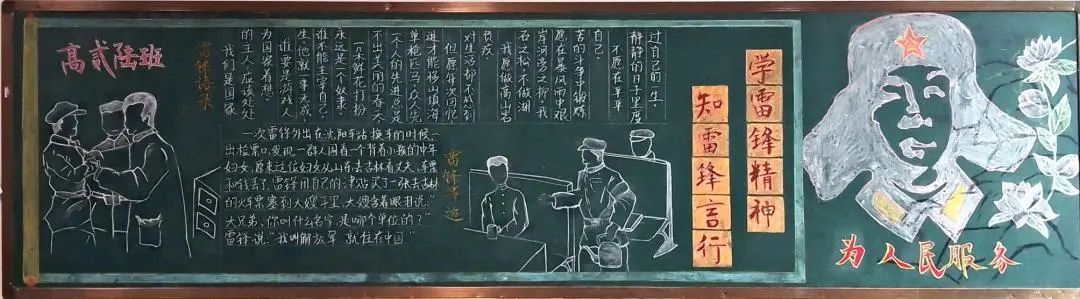 高贰陆班
雷锋语录
我们是国家
的主人,应该处处
为国家着想。
谁要是游戏人
生,他就一事无成,
谁不能主宰自己,
永远是一个奴隶。
一朵鲜花打扮
不出美丽的春天,
一个人的先进总是
单枪匹马,众人先
进才能移山填海
但愿每次回忆,
对生活都不感到
负疚。
我愿做高山岩
石之松,不做湖
岸河旁之柳。我
愿在暴风雨中艰
苦的斗争中锻炼
自己。
不愿在平平
静静的日子里度
过自己的一生。
一次雷锋外出在沈阳车站换车的时候,一
出检票口,发现一群人围看一个背着小孩的中年
妇女,原来这位妇女从山东去吉林看丈夫,车票
和钱丢了。雷锋用自己的津贴买了一张去吉林
的火车票塞到大嫂手里,大嫂含着眼泪说:“
大兄弟,你叫什么名字,是哪个单位的?”
雷锋说:“我叫解放军,就住在中国”
雷锋事迹
学雷锋精神
知雷锋言行
为人民服务